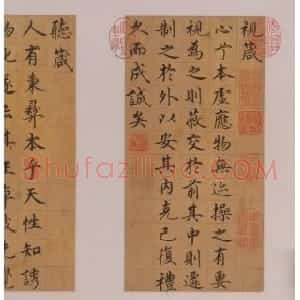 視箴
心兮本虛應物無迹操之有要
視為之則蔽交於前其中則遷
制之於外以安其內克己復禮
久而成誠矣
聽箴
人有秉彝本乎天性知誘